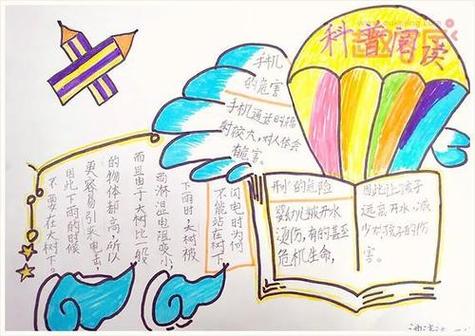 科普阅读
手机
的危害
手机通话时辐
射较大，对人体会
有危害。
闪电时为何
不能站在树下
下雨时，大树被
雨淋湿电阻减小，
而且由于大树比一般
的物体都高，所以
更容易引来电击
因此下雨的时候
不要站在大树下。
开水的危险
婴幼儿被开水
烫伤，有的甚至
危机生命，
因此让孩子
远离开水，减
少对孩子的伤
害。